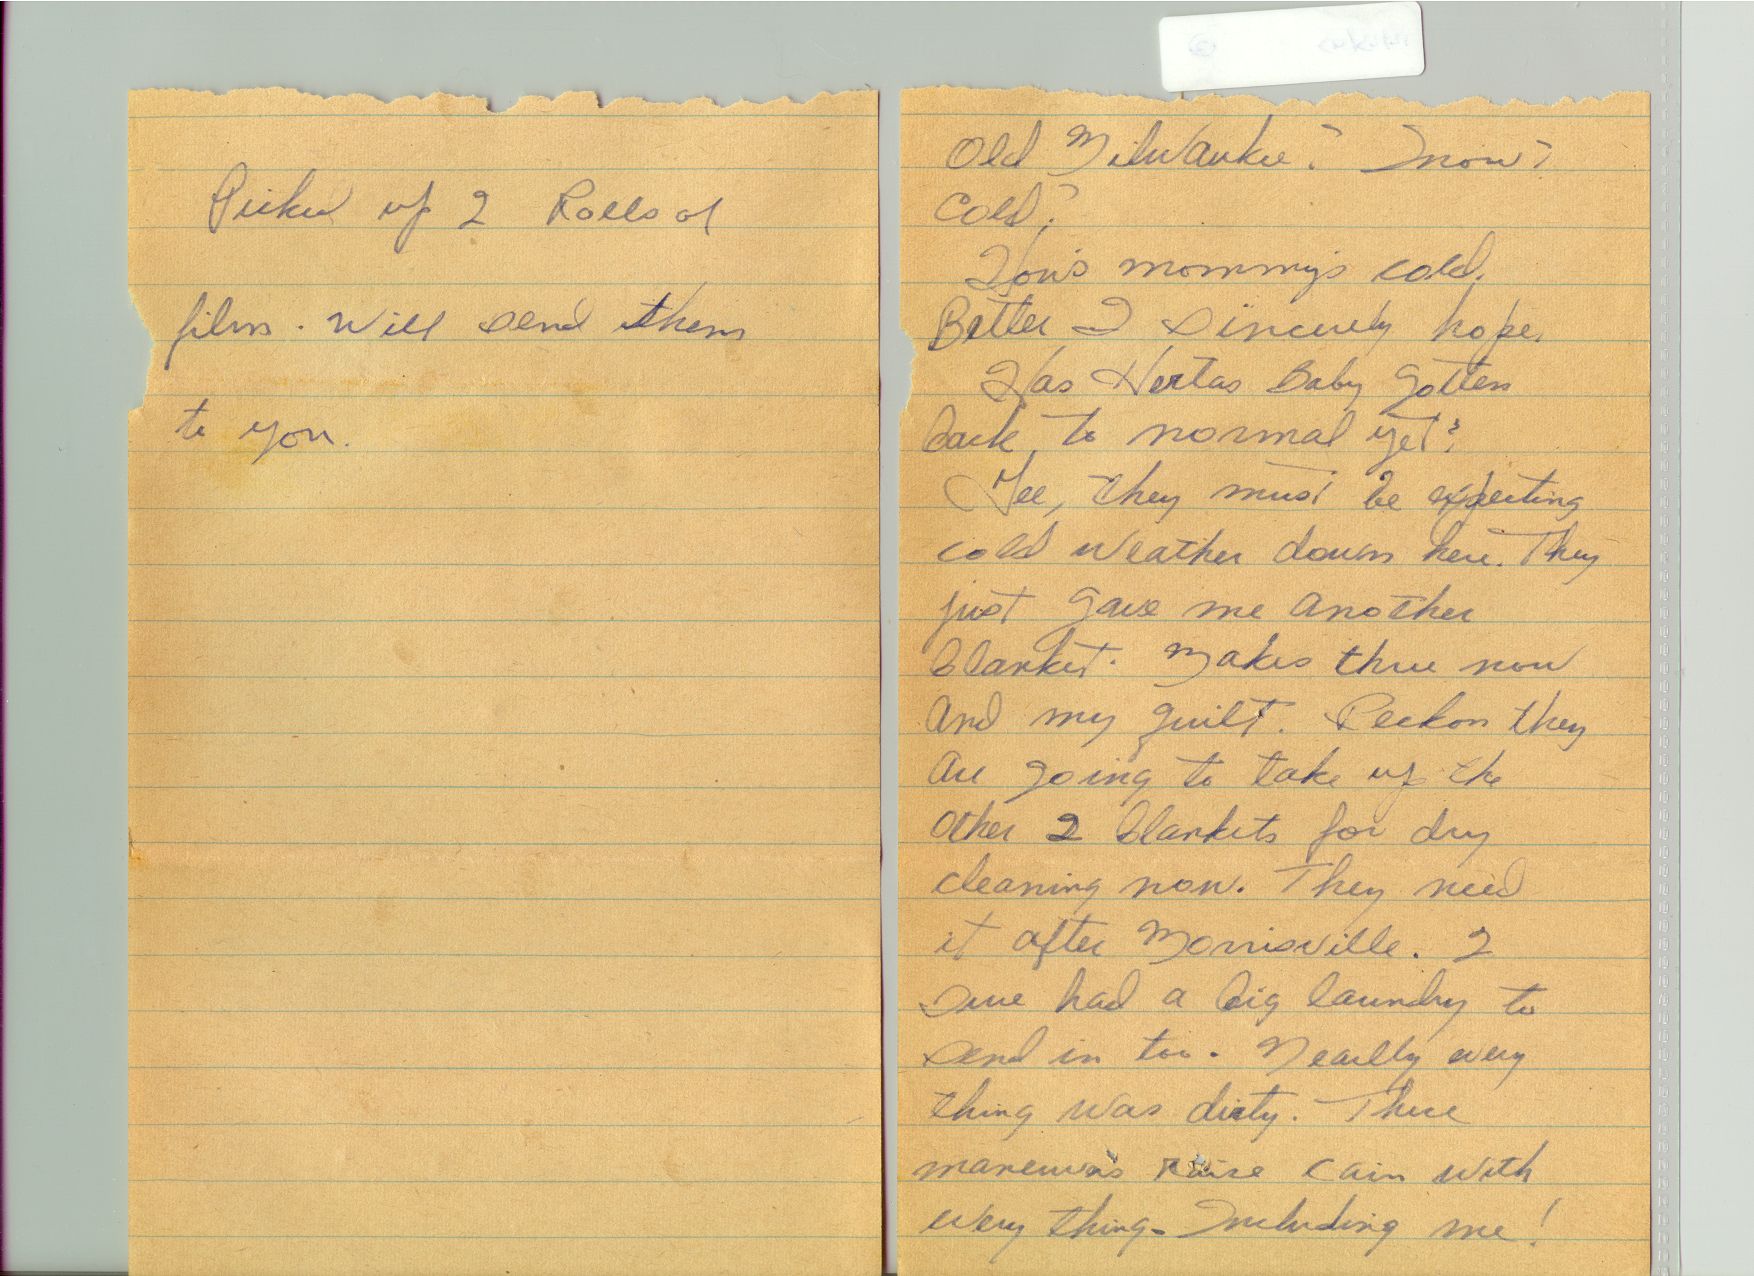 Picked up 2 Rolls of
film. Will send them
to you.
Old Milwaukee? Snow?
Cold?
How's mommy's cold.
Better I sincerely hope.
Has Hertas Baby gotten
back to normal yet?
Gee, they must be expecting
cold weather down here. They
just gave me another
blanket. Makes three now
and my quilt. Reckon they
are going to take up the
other 2 blankets for dry
cleaning now. They need
it after Morrisville. I
sure had a big laundry to
send in too. Nearlly every
thing was dirty. These
maneuvers raise cain with
every thing - Including me!